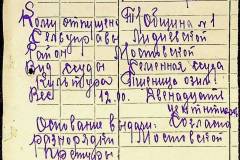 Кому отпущено Община №1
Сельуправы Лидневской
Район Мостовской
Вид ссуды Семенная ссуда
Культура Пшеница озим.
Вес 12.00. Двенадцать
центнеров
Основание выдачи: Согласно
разнорядки Мостовской